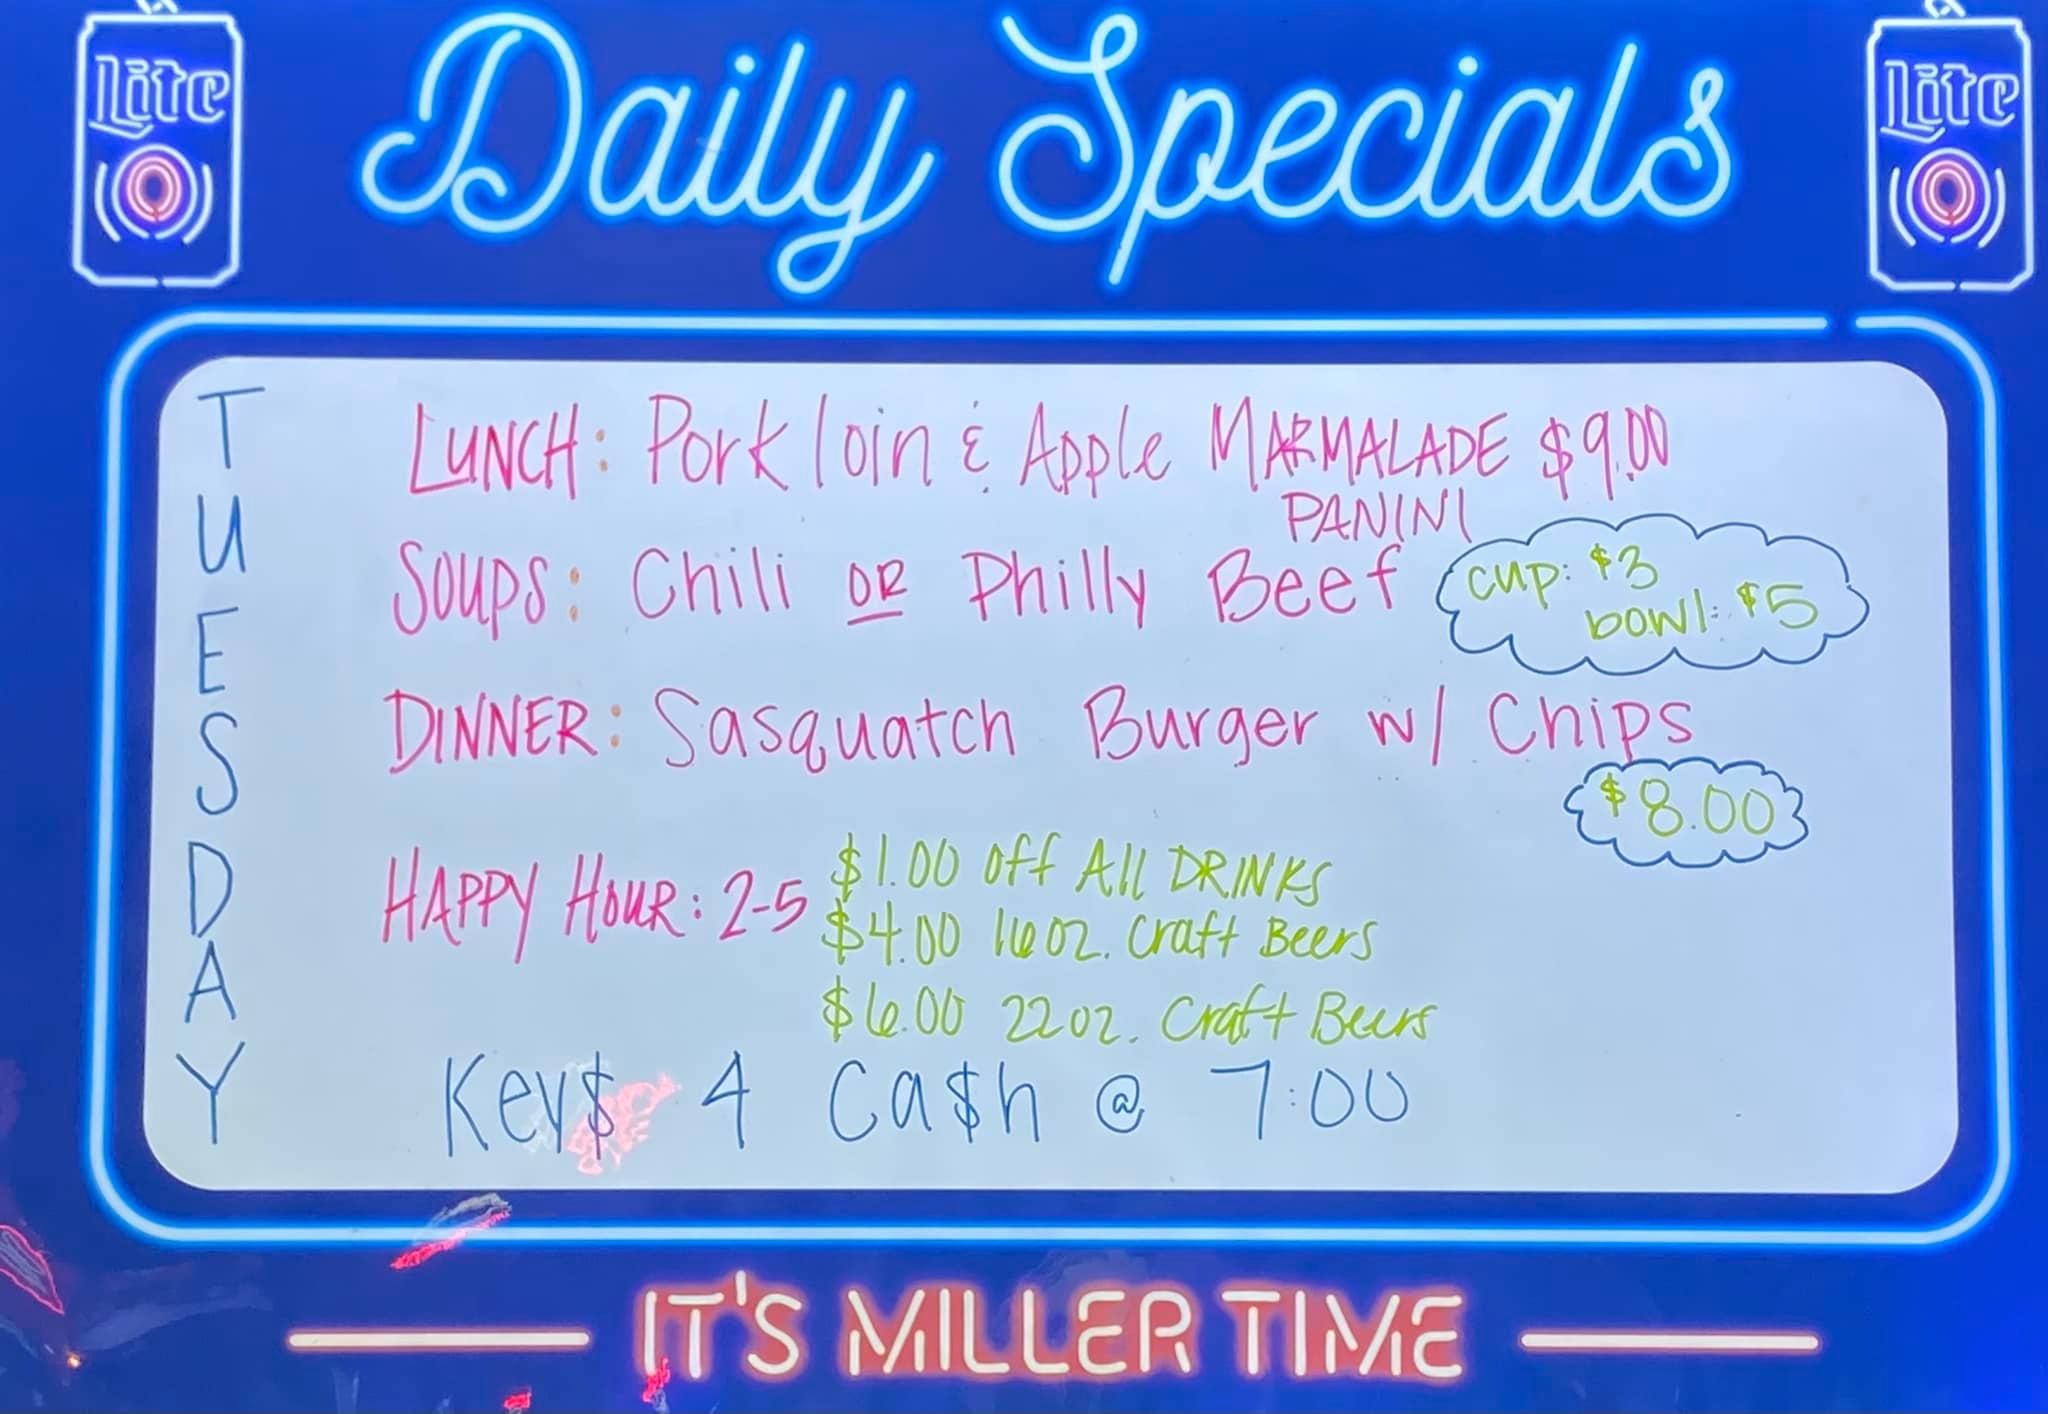 Lite
Daily Specials
Lite
TUESDAY
LUNCH: Pork loin & Apple MARMALADE $9.00
PANINI
SOUPS: Chili OR Philly Beef
cup: $3
bowl: $5
DINNER: Sasquatch Burger w/ Chips
$8.00
HAPPY HOUR: 2-5
$1.00 off All DRINKS
$4.00 16oz. Craft Beers
$6.00 22oz. Craft Beers
Key$ 4 Ca$h @ 7:00
IT'S MILLER TIME